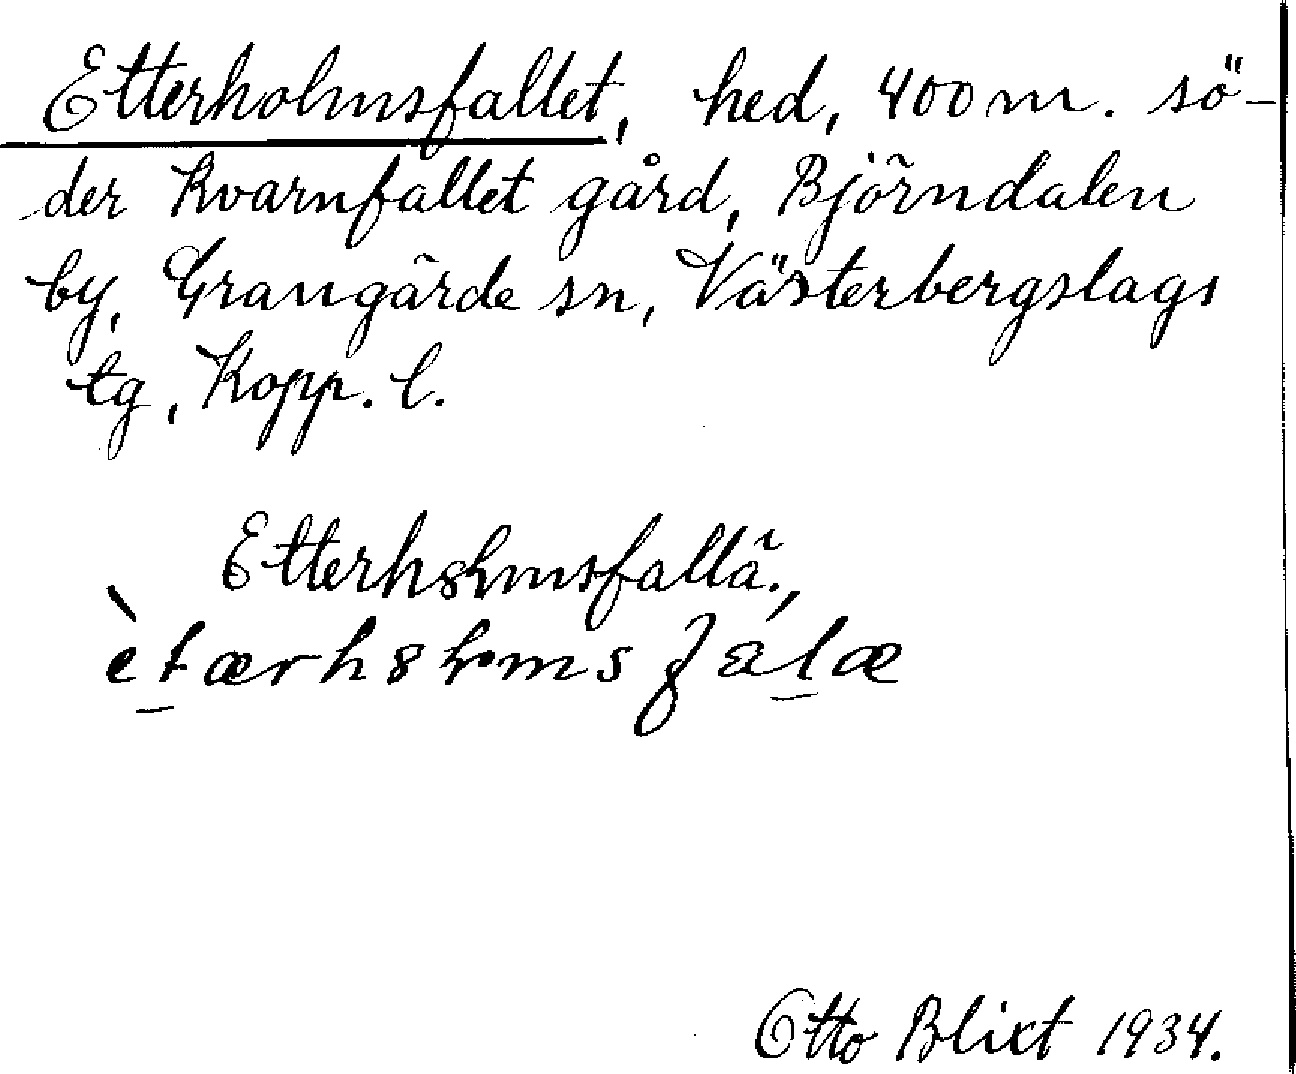 Etterholmsfallet, hed, 400 m. sö-
der Kvarnfallet gård, Björndalen
by, Grangärde sn, Västerbergslags
tg, Kopp. l.
Etterh8ɽmsfallä.,
è̀tærh8ɽmsfalæ
Otto Blixt 1934.